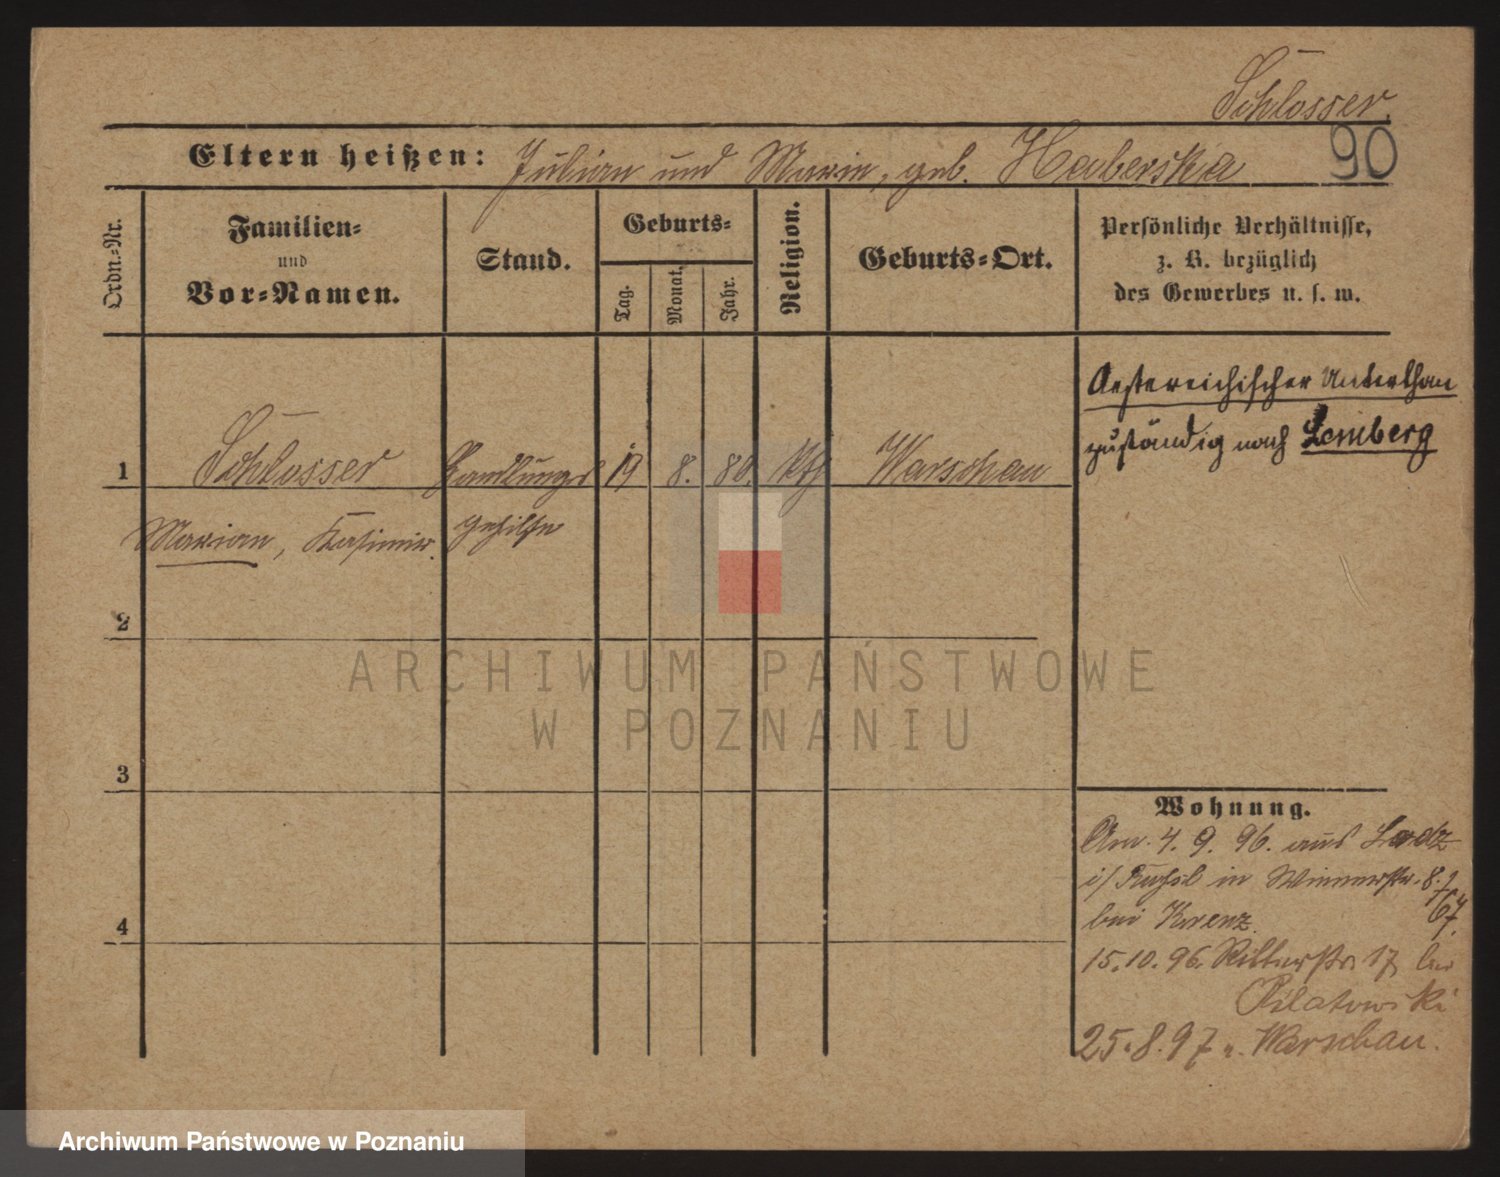 Schlosser.
Eltern heißen: Julian und Marie, geb. Haberska
90
Ordn.-Nr.
Familien-
und
Vor-Namen.
Stand.
Geburts-
Tag.
Monat.
Jahr.
Religion.
Geburts-Ort.
Persönliche Verhältnisse,
z. B. bezüglich
des Gewerbes u. s. w.
Oestereichischer Unterthan
zuständig nach Lemberg
1 Schlosser Handlungs 19 8. 80. kth Warschau
Marian, Kasimir. gehilfe
2
3
4
ARCHIWUM PAŃSTWOWE
W POZNANIU
Wohnung.
Am 4. 9. 96. aus Lodz
i/ Rußl in Wienerstr. 8.
bei Krenz.
15.10.96. Ritterstr. 17 bei
Pilatowski
25.8.97 n. Warschau.
Archiwum Państwowe w Poznaniu